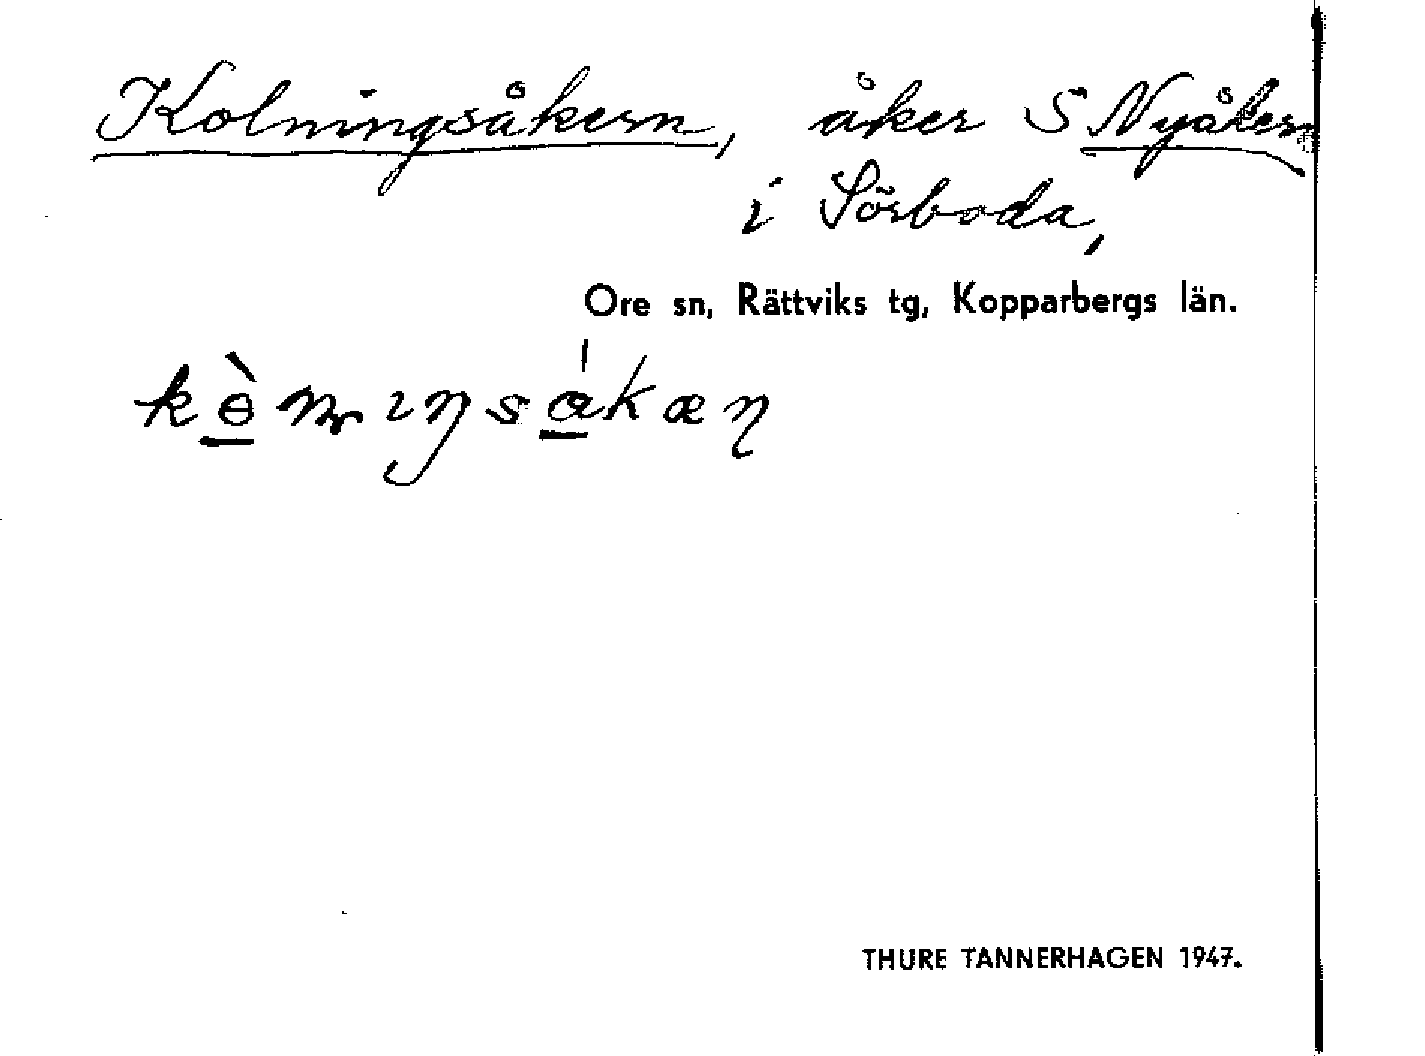 Kolningsåkern, åker S Nyåkern
i Sörboda,
Ore sn, Rättviks tg, Kopparbergs län.
THURE TANNERHAGEN 1947.